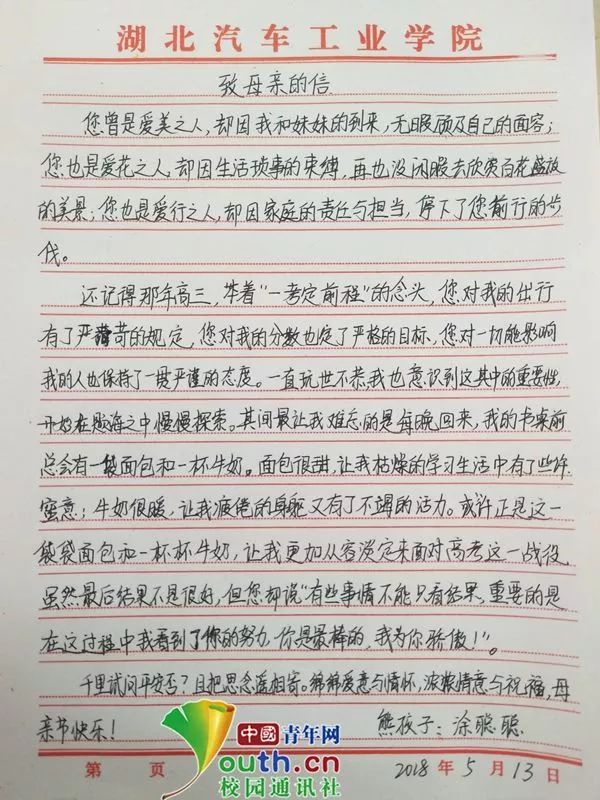 湖北汽车工业学院
致母亲的信
您曾是爱美之人,却因我和妹妹的到来,无暇顾及自己的面容;
您也是爱花之人,却因生活琐事的束缚,再也没闲暇去欣赏百花盛放
的美景;您也是爱行之人,却因家庭的责任与担当,停下了您前行的步
伐。
还记得那年高三,本着“一考定前程”的念头,您对我的出行
有了严苛的规定,您对我的分数也定了严格的目标,您对一切能影响
我的人也保持了一贯严谨的态度。一直玩世不恭,我也意识到这其中的重要性,
开始在题海之中慢慢探索。其间最让我难忘的是每晚回来,我的书桌前
总会有一袋面包和一杯牛奶。面包很甜,让我枯燥的学习生活中有了些许
蜜意;牛奶很暖,让我疲倦的身躯又有了不竭的活力。或许正是这一
袋袋面包和一杯杯牛奶,让我更加从容淡定来面对高考这一战役。
虽然最后结果不是很好,但您却说“有些事情不能只看结果,重要的是
在这过程中我看到了你的努力,你是最棒的,我为你骄傲!”。
千里试问平安否?且把思念遥相寄。绵绵爱意与情怀,浓浓情意与祝福,母
亲节快乐!
熊孩子:涂聪聪
中國青年网
Youth.cn
校园通讯社
第 页
2018年5月13日